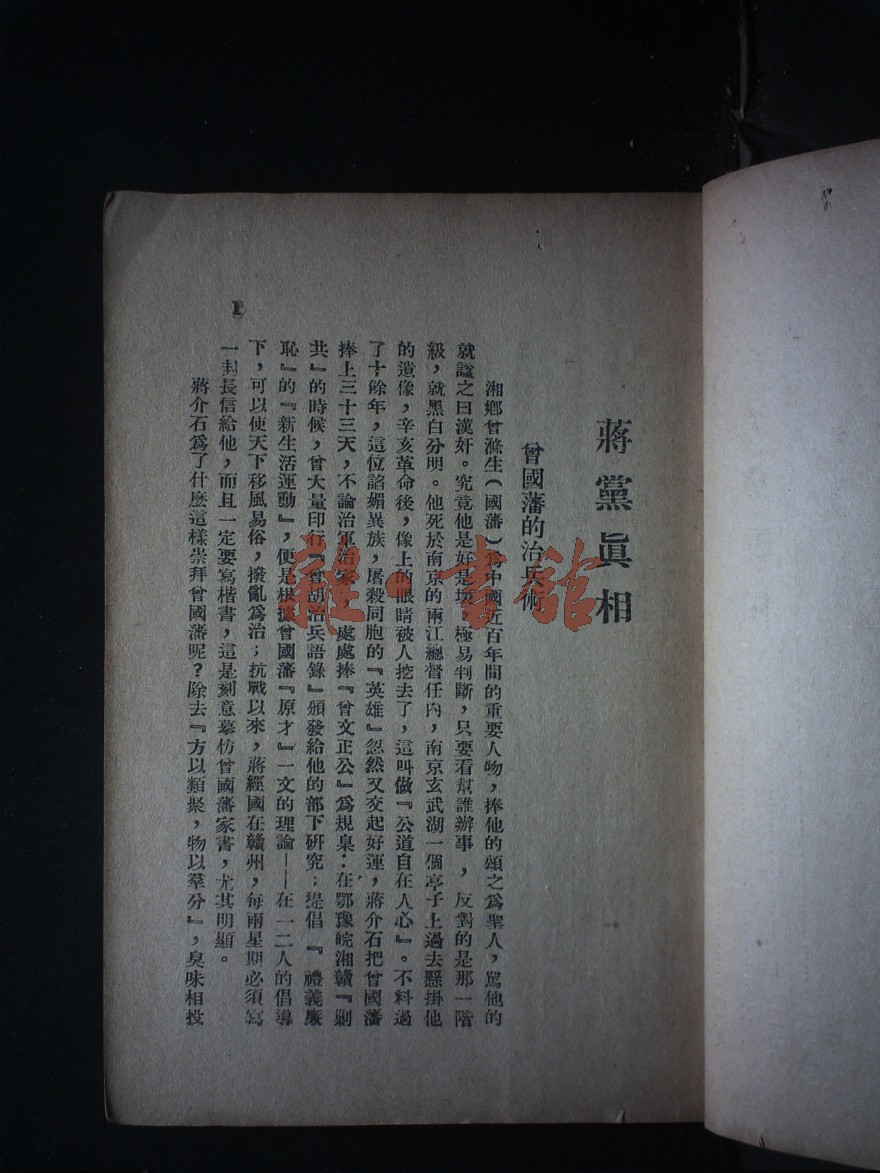 蔣黨眞相
曾國藩的治兵術
湘鄉曾滌生(國藩)爲中國近百年間的重要人物，捧他的頌之爲聖人，罵他的
就諡之曰漢奸。究竟他是好是壞，極易判斷，只要看幫誰辦事，反對的是那一階
級，就黑白分明。他死於南京的兩江總督任內，南京玄武湖一個亭子上過去懸掛他
的遺像，辛亥革命後，像上的眼睛被人挖去了，這叫做『公道自在人心』。不料過
了十餘年，這位諂媚異族，屠殺同胞的『英雄』忽然又交起好運，蔣介石把曾國藩
捧上三十三天，不論治軍治家，處處捧『曾文正公』爲規臬：在鄂豫皖湘贛『剿
共』的時候，曾大量印行『曾胡治兵語錄』頒發給他的部下硏究；提倡『禮義廉
恥』的『新生活運動』，便是根據曾國藩『原才』一文的理論——在一二人的倡導
下，可以使天下移風易俗，撥亂爲治；抗戰以來，蔣經國在贛州，每兩星期必須寫
一封長信給他，而且一定要寫楷書，這是刻意摹仿曾國藩家書，尤其明顯。
蔣介石爲了什麼這樣崇拜曾國藩呢？除去『方以類聚，物以羣分』，臭味相投
1
雜·書館